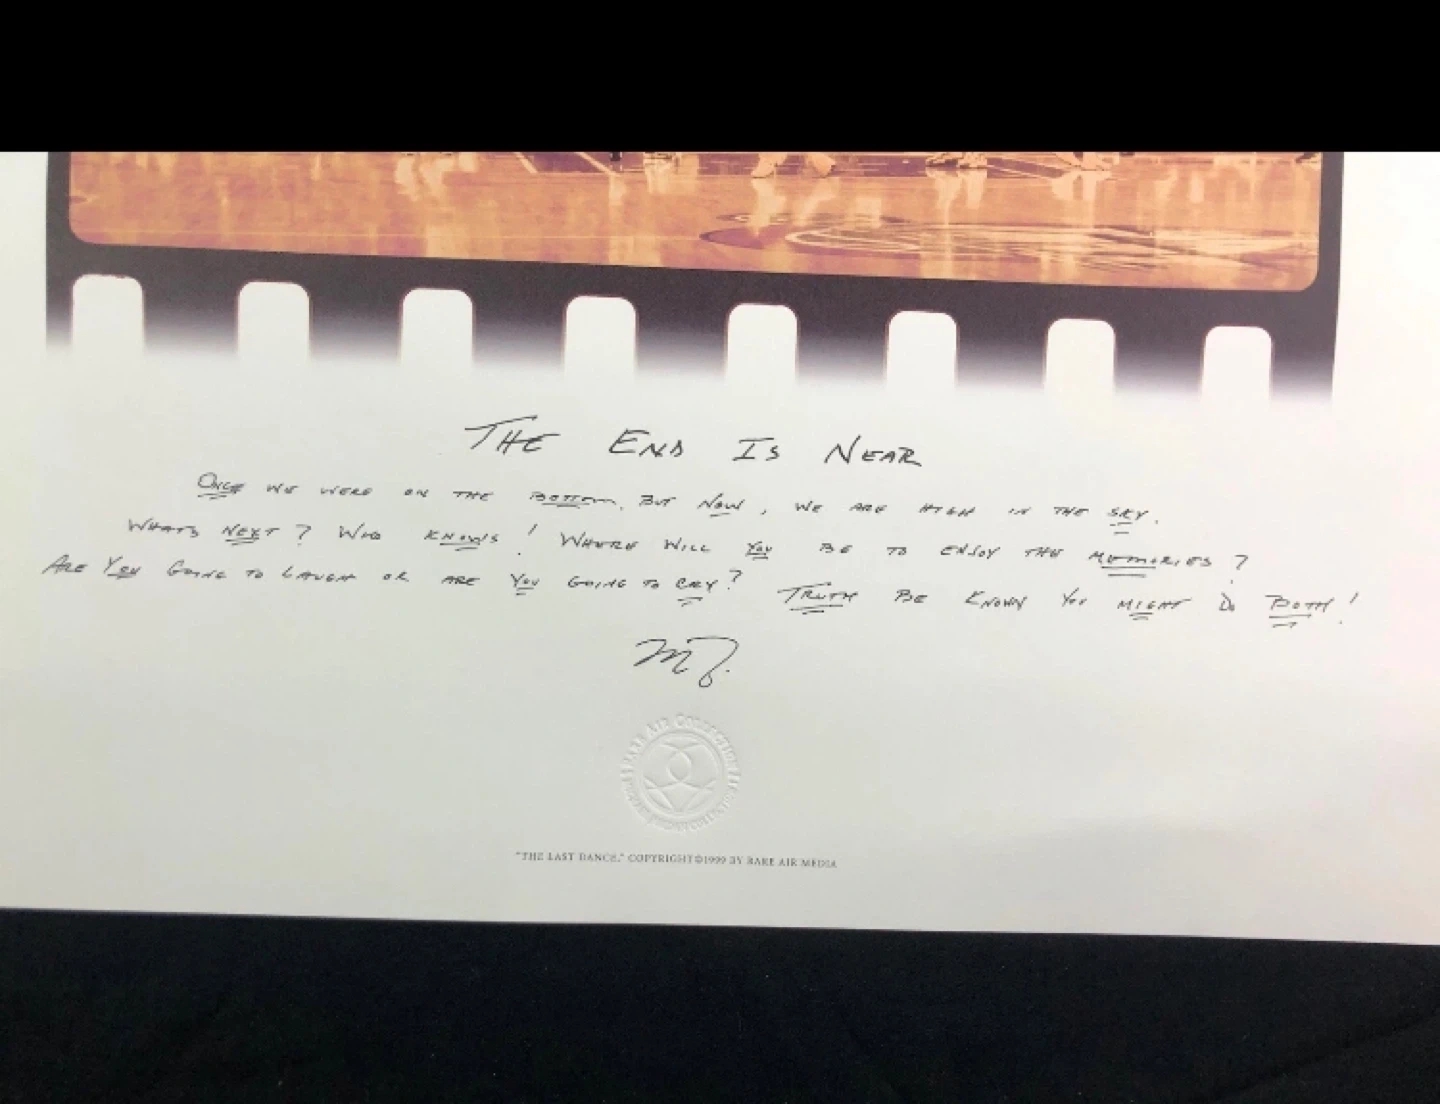 THE END IS NEAR
ONCE WE WERE ON THE BOTTOM. BUT NOW, WE ARE HIGH IN THE SKY.
WHATS NEXT? WHO KNOWS! WHERE WILL YOU BE TO ENJOY THE MEMORIES?
ARE YOU GOING TO LAUGH OR ARE YOU GOING TO CRY? TRUTH BE KNOWN YOU MIGHT DO BOTH!
MJ.
RARE AIR COLLECTION
"THE LAST DANCE." COPYRIGHT©1999 BY RARE AIR MEDIA